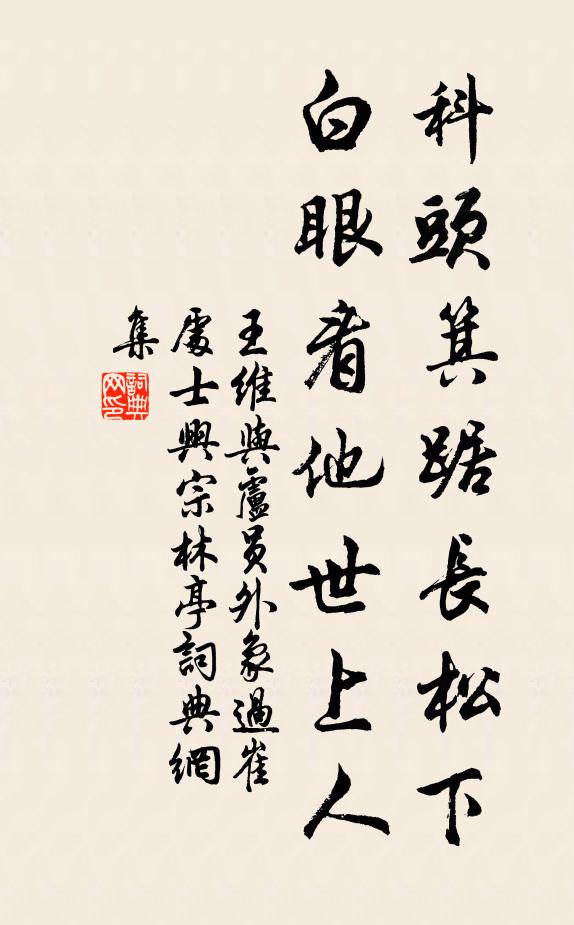 科頭箕踞長松下
白眼看他世上人
王維與盧員外象過崔
處士興宗林亭詞典網
集
詞典
网印